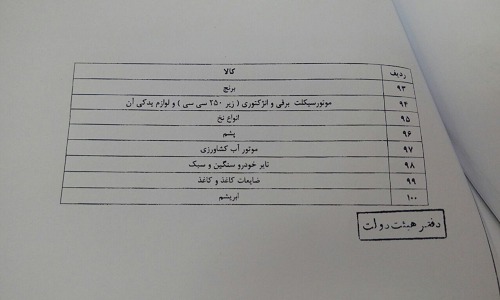 ردیف کالا
۹۳ برنج
۹۴ موتورسیکلت برقی و انژکتوری ( زیر ۲۵۰ سی سی ) و لوازم یدکی آن
۹۵ انواع نخ
۹۶ پشم
۹۷ موتور آب کشاورزی
۹۸ تایر خودرو سنگین و سبک
۹۹ ضایعات کاغذ و کاغذ
۱۰۰ ابریشم
دفتر هیئت دولت